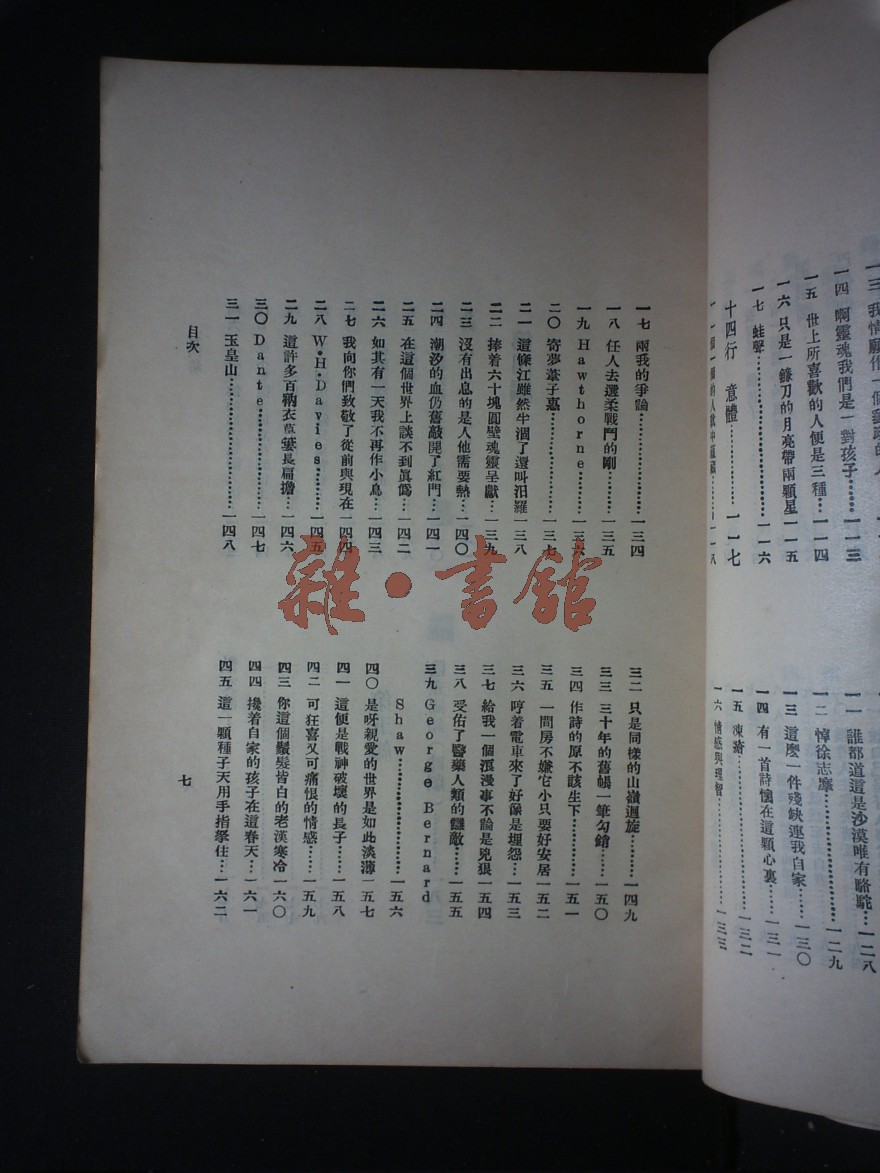 一三 我情願作一個
一四 啊靈魂我們是一對孩子…一一三
一五 世上所喜歡的人便是三種…一一四
一六 只是一鐮刀的月亮帶兩顆星…一一五
一七 蛙聲…一一六
十四行 意體…一一七
一一八
一一 誰都道這是沙漠唯有駱駝…一二八
一二 悼徐志摩…一二九
一三 這麼一件殘缺連我自家…一三〇
一四 有一首詩懷在這顆心裏…一三一
一五 凍瘡…一三二
一六 情感與理智…一三三
一七 兩我的爭論…一三四
一八 任人去選柔戰鬥的剛…一三五
一九 Hawthorne…一三六
二〇 寄夢葦子惠…一三七
二一 這條江雖然半涸了還叫汨羅…一三八
二二 捧着六十塊圓壁魂靈呈獻…一三九
二三 沒有出息的是人他需要熱…一四〇
二四 潮汐的血仍舊敲開了紅門…一四一
二五 在這個世界上談不到眞僞…一四二
二六 如其有一天我不再作小鳥…一四三
二七 我向你們致敬了從前與現在…一四四
二八 W·H·Davies…一四五
二九 這許多百衲衣草蔞長扁擔…一四六
三〇 Dante…一四七
三一 玉皇山…一四八
三二 只是同樣的山嶺迴旋…一四九
三三 三十年的舊帳一筆勾銷…一五〇
三四 作詩的原不該生下…一五一
三五 一間房不嫌它小只要好安居…一五二
三六 哼着電車來了好像是埋怨…一五三
三七 給我一個浪漫事不論是兇狠…一五四
三八 受佑了醫藥人類的讎敵…一五五
三九 George Bernard
Shaw…一五六
四〇 是呀親愛的世界是如此淡薄…一五七
四一 這便是戰神破壞的長子…一五八
四二 可狂喜又可痛恨的情感…一五九
四三 你這個鬚髮皆白的老漢寒冷…一六〇
四四 攙着自家的孩子在這春天…一六一
四五 這一顆種子天用手指拏住…一六二
目次
七
雜·書館